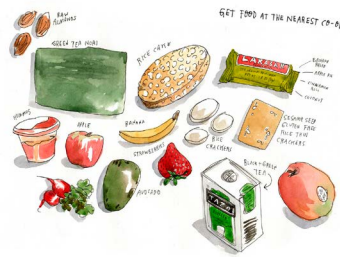 GET FOOD AT THE NEAREST CO-OP
RAW
ALMONDS
GREEN TEA NORI
RICE CAKE
LARABAR
HUMMUS
APPLE
BANANA
STRAWBERRIES
RICE
CRACKERS
SESAME SEED
GLUTEN FREE
RICE THIN
CRACKERS
AVOCADO
BLACK + GREEN
TEA
TAZO